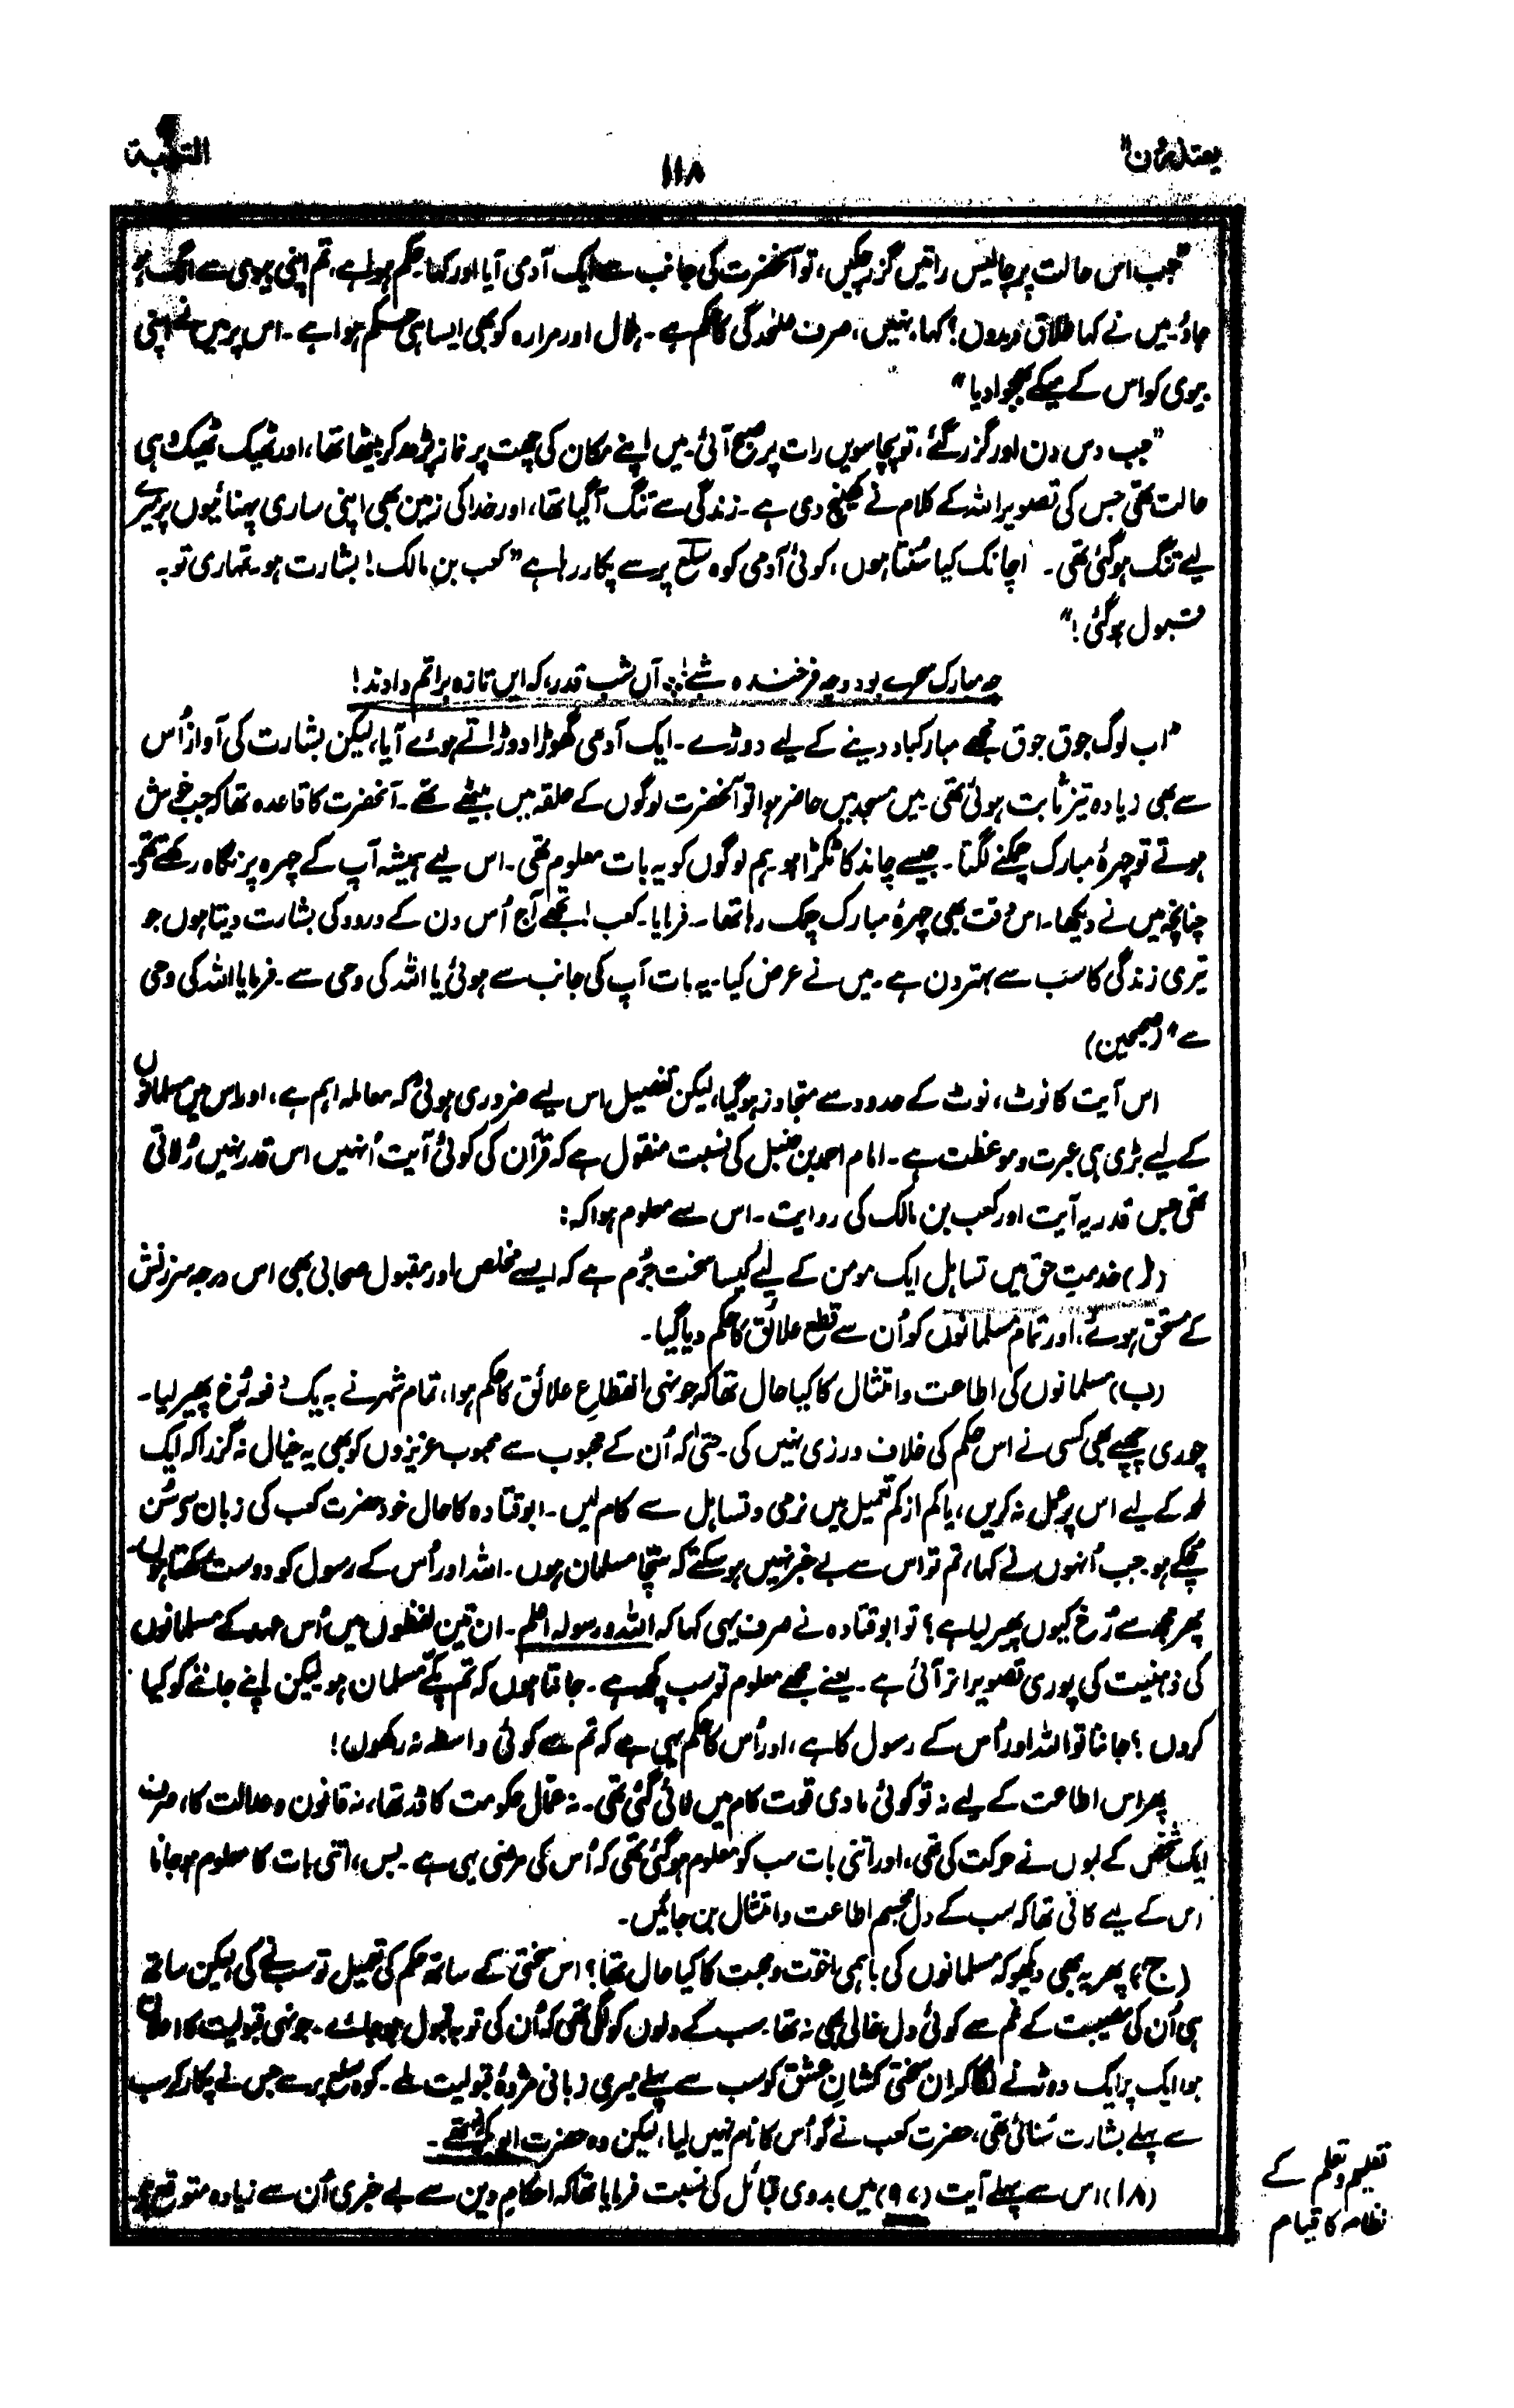 یعتذرون ۱۱
۱۱۸
التوبة
"جب اس حالت پر چالیس راتیں گزر چکیں، تو آنحضرت کی جانب سے ایک آدمی آیا اور کہا۔ حکم ہوا ہے، تم اپنی بیوی سے الگ ہو
جاؤ۔ میں نے کہا طلاق دیدوں؟ کہا، نہیں، صرف علٰحدگی کا حکم ہے۔ ہلال اور مرارہ کو بھی ایسا ہی حکم ہوا ہے۔ اس پر میں نے اپنی
بیوی کو اس کے میکے بھجوا دیا"
"جب دس دن اور گزر گئے، تو پچاسویں رات پر صبح آئی۔ میں اپنے مکان کی چھت پر نماز پڑھ کر بیٹھا تھا، اور ٹھیک ٹھیک وہی
حالت تھی جس کی تصویر اللہ کے کلام نے کھینچ دی ہے۔ زندگی سے تنگ آگیا تھا، اور خدا کی زمین بھی اپنی ساری پہنائیوں پر میرے
لیے تنگ ہوگئی تھی۔ اچانک کیا سُنتا ہوں، کوئی آدمی کوہ سلع پر سے پکار رہا ہے "کعب بن مالک! بشارت ہو۔ تمہاری توبہ
قبول ہوگئی!"
چہ مبارک سحرے بود و چہ فرخندہ شبے ؞ آں شب قدر، کہ ایں تازہ براتم دادند!
"اب لوگ جوق جوق مجھے مبارکباد دینے کے لیے دوڑے۔ ایک آدمی گھوڑا دوڑاتے ہوئے آیا، لیکن بشارت کی آواز اُس
سے بھی زیادہ تیز ثابت ہوئی تھی۔ میں مسجد میں حاضر ہوا تو آنحضرت لوگوں کے حلقہ میں بیٹھے تھے۔ آنحضرت کا قاعدہ تھا کہ جب خوش
ہوتے تو چہرۂ مبارک چمکنے لگتا۔ جیسے چاند کا ٹکڑا ہو۔ ہم لوگوں کو یہ بات معلوم تھی۔ اس لیے ہمیشہ آپ کے چہرہ پر نگاہ رکھتے تھے۔
چنانچہ میں نے دیکھا۔ اس وقت بھی چہرۂ مبارک چمک رہا تھا۔ فرمایا۔ کعب! تجھے آج اُس دن کے ورود کی بشارت دیتا ہوں جو
تیری زندگی کا سب سے بہتر دن ہے۔ میں نے عرض کیا۔ یہ بات آپ کی جانب سے ہوئی یا اللہ کی وحی سے۔ فرمایا اللہ کی وحی
سے" (صحیحین)
اس آیت کا نوٹ، نوٹ کے حدود سے متجاوز ہوگیا، لیکن تفصیل اس لیے ضروری ہوئی کہ معاملہ اہم ہے، اور اس میں مسلمانوں
کے لیے بڑی ہی عبرت و موعظت ہے۔ امام احمد بن حنبل کی نسبت منقول ہے کہ قرآن کی کوئی آیت اُنہیں اس قدر نہیں رُلاتی
تھی جس قدر یہ آیت اور کعب بن مالک کی روایت۔ اس سے معلوم ہوا کہ:
(ا) خدمتِ حق میں تساہل ایک مومن کے لیے کیسا سخت جُرم ہے کہ ایسے مخلص اور مقبول صحابی بھی اس درجہ سرزنش
کے مستحق ہوئے، اور تمام مسلمانوں کو اُن سے قطع علائق کا حکم دیا گیا۔
(ب) مسلمانوں کی اطاعت و امتثال کا کیا حال تھا کہ جونہی انقطاعِ علائق کا حکم ہوا، تمام شہر نے بہ یک دفعہ رُخ پھیر لیا۔
چوری چھپے بھی کسی نے اس حکم کی خلاف ورزی نہیں کی۔ حتیٰ کہ اُن کے محبوب سے محبوب عزیزوں کو بھی یہ خیال نہ گزرا کہ ایک
لمحہ کے لیے اس پر عمل نہ کریں، یا کم از کم تعمیل میں نرمی و تساہل سے کام لیں۔ ابوقتادہ کا حال خود حضرت کعب کی زبان سے سُن
چُکے ہو۔ جب اُنہوں نے کہا، تم تو اس سے بے خبر نہیں ہوسکتے کہ سچّا مسلمان ہوں۔ اللہ اور اُس کے رسول کو دوست رکھتا ہوں۔
پھر مجھ سے رُخ کیوں پھیر لیا ہے؟ تو ابوقتادہ نے صرف یہی کہا کہ اللہ و رسولہ اعلم۔ ان تین لفظوں میں اُس عہد کے مسلمانوں
کی ذہنیت کی پوری تصویر اتر آئی ہے۔ یعنے مجھے معلوم تو سب کچھ ہے۔ جانتا ہوں کہ تم پکّے مسلمان ہو، لیکن اپنے جاننے کو کیا
کروں؟ جاننا تو اللہ اور اُس کے رسول کا ہے، اور اُس کا حکم یہی ہے کہ تم سے کوئی واسطہ نہ رکھوں!
پھر اس اطاعت کے لیے نہ تو کوئی مادی قوت کام میں لائی گئی تھی۔ نہ عمّال حکومت کا ڈر تھا، نہ قانون و عدالت کا، صرف
ایک شخص کے لبوں نے حرکت کی تھی، اور اتنی بات سب کو معلوم ہوگئی تھی کہ اُس کی مرضی یہی ہے۔ بس، اتنی بات کا معلوم ہوجانا
اس کے لیے کافی تھا کہ سب کے دل مجسم اطاعت و امتثال بن جائیں۔
(ج) پھر یہ بھی دیکھو کہ مسلمانوں کی باہمی اخوّت و محبت کا کیا حال تھا؟ اس سختی کے ساتھ حکم کی تعمیل تو سب نے کی، لیکن ساتھ
ہی اُن کی مصیبت کے غم سے کوئی دل خالی بھی نہ تھا۔ سب کے دلوں کو لگی تھی کہ اُن کی توبہ قبول ہوجائے۔ جونہی قبولیت کا اعلان
ہوا ایک پر ایک دوڑنے لگا کہ ان سختی کشانِ عشق کو سب سے پہلے میری زبانی مژدۂ قبولیت ملے۔ کوہ سلع پر سے جس نے پکار کر سب
سے پہلے بشارت سُنائی تھی، حضرت کعب نے گو اُس کا نام نہیں لیا، لیکن وہ حضرت ابوبکر تھے۔
(۱۸) اس سے پہلے آیت (۹۷) میں بدوی قبائل کی نسبت فرمایا تھا کہ احکامِ دین سے بے خبری اُن سے زیادہ متوقع ہے۔
تعلیم و تعلم کے
نظام کا قیام